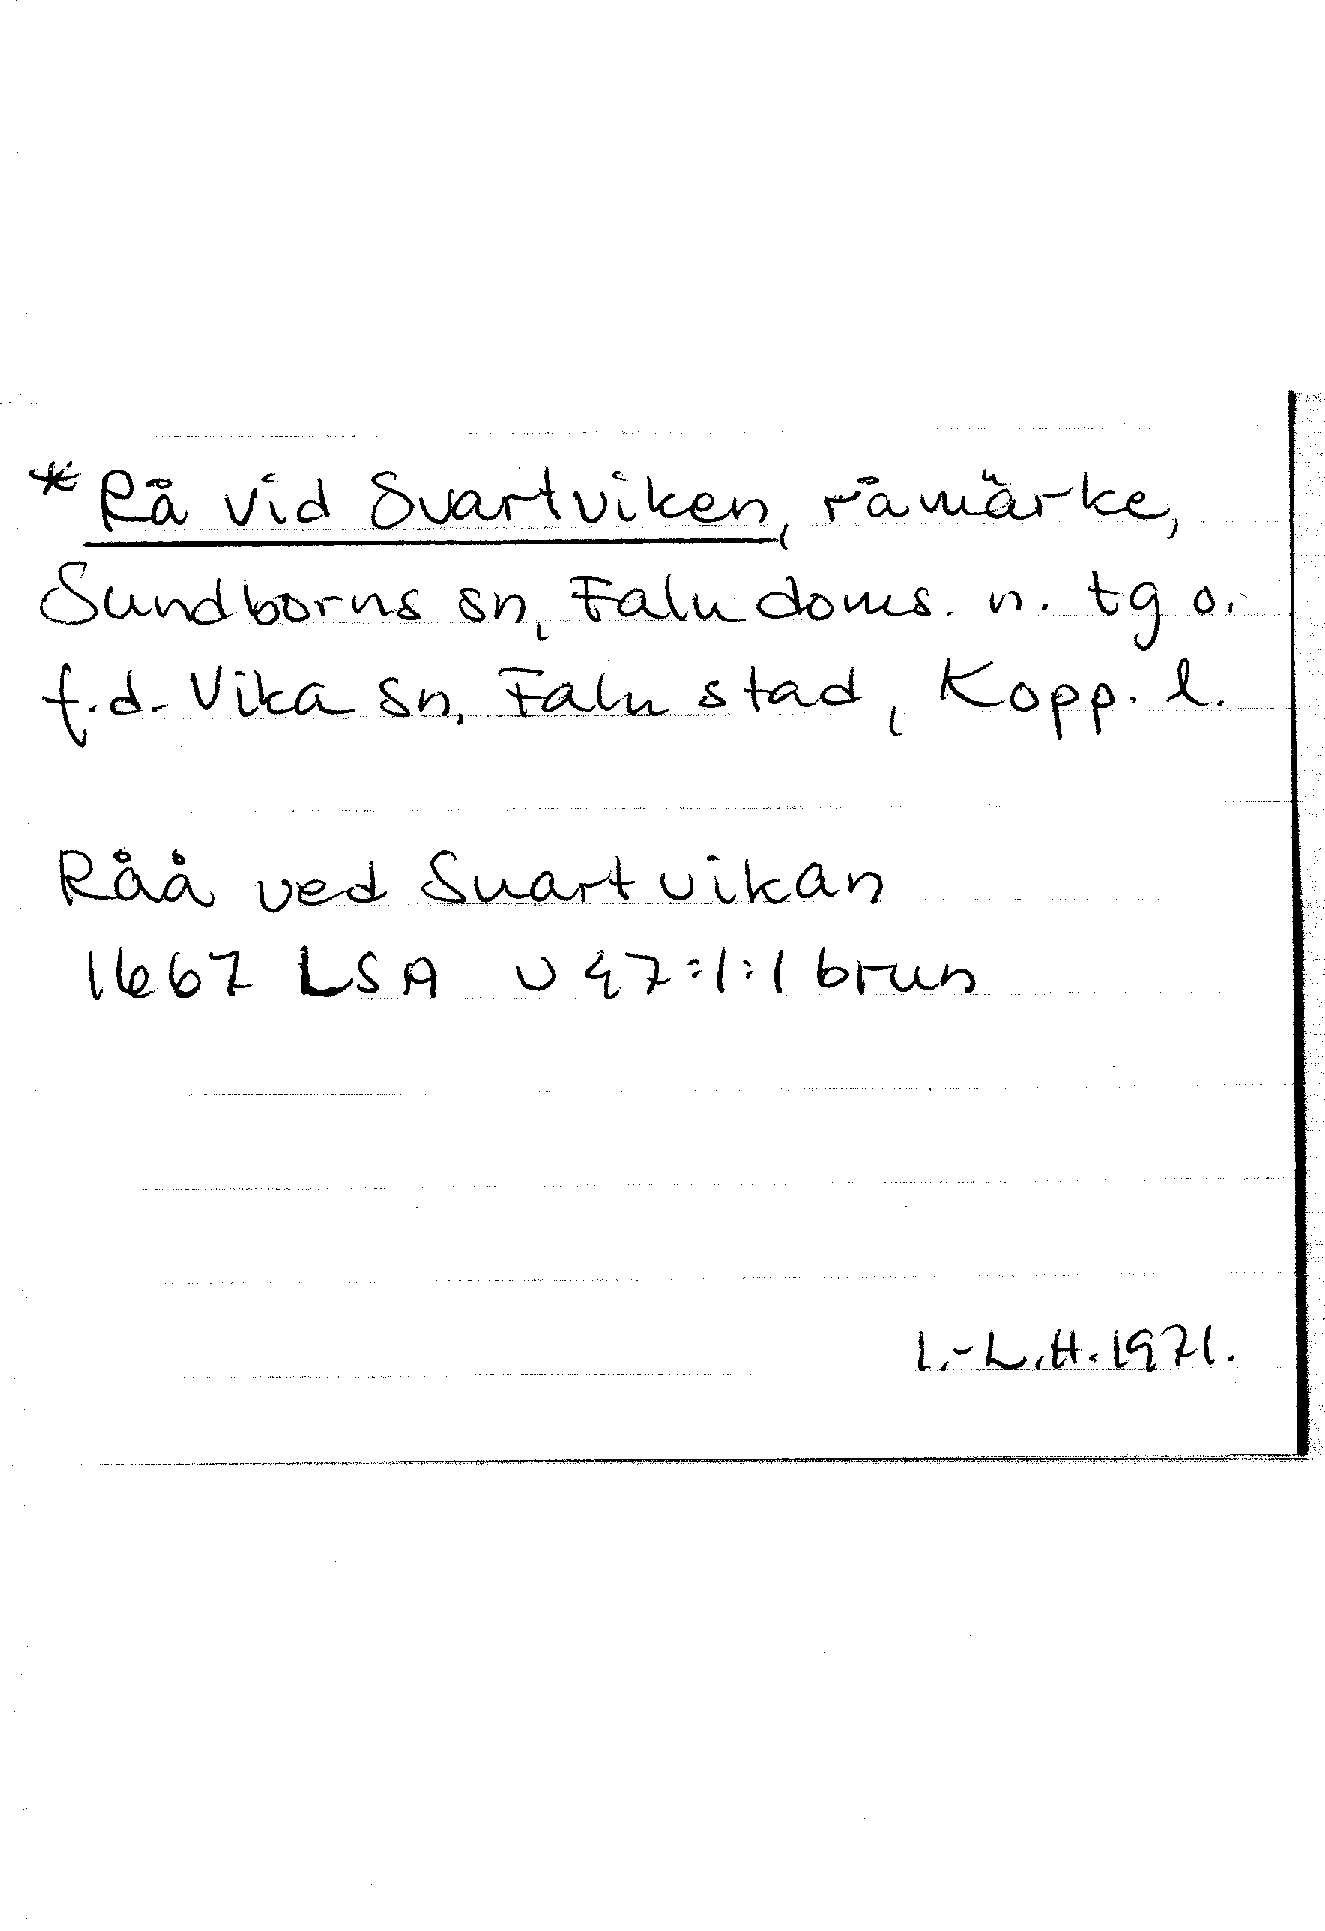 *Rå vid Svartviken, råmärke,
Sundborns sn, Falu doms. n. tg o.
f.d. Vika sn, Falu stad, Kopp. l.
Råå ved Suartvikan
1667 LSA U 47:1:1 brun
I.-L.H. 1971.